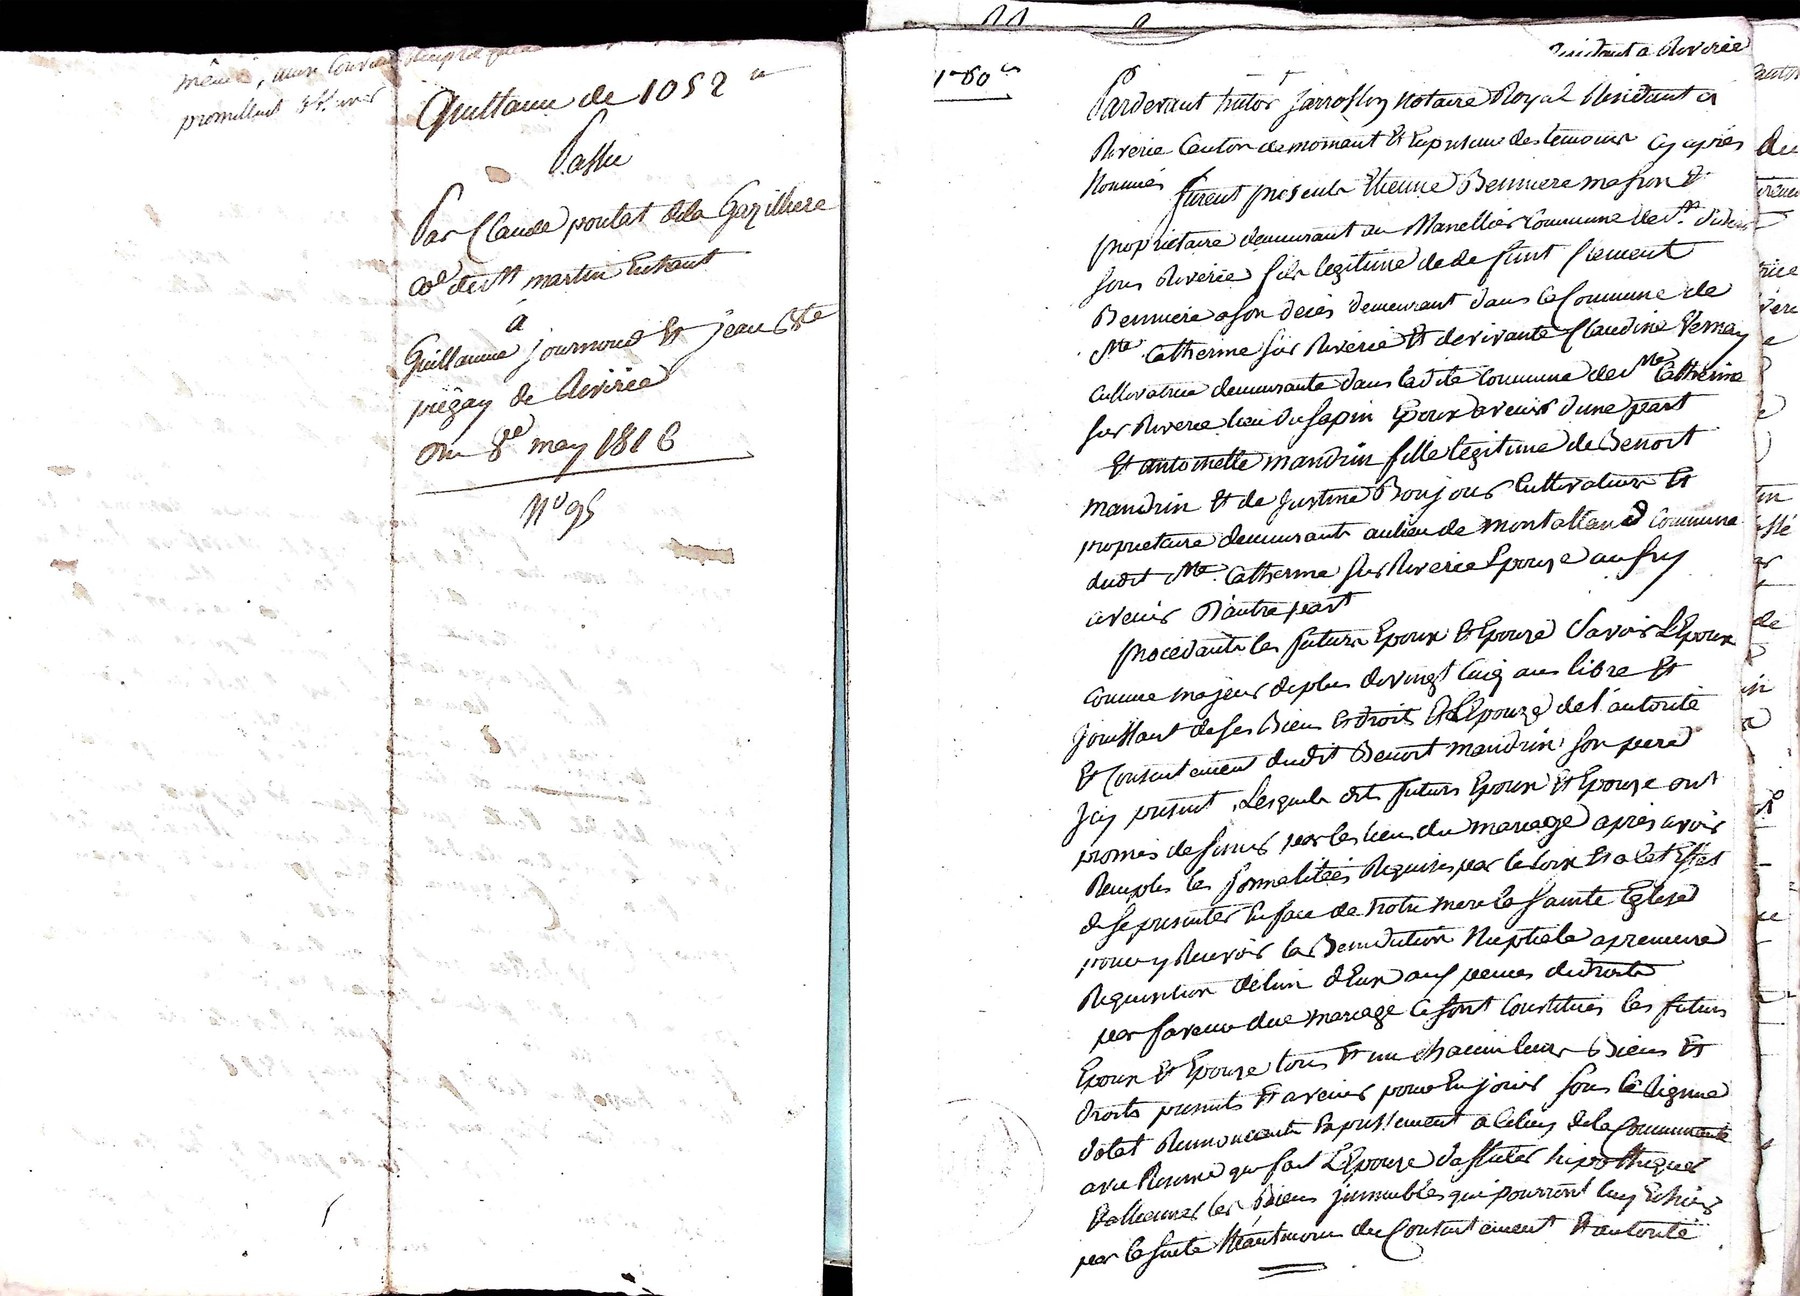 même
promettent
Quittance de 1052 #
Passée
Par Claude poulat dela Gazilliere
Cne de St martin En haut
à
Guillaume journoud Et jean Bte
piegay de Riverie
Du 8e may 1816
N° 95
résidant a Riverie
Pardevant Jarrosson Notaire Royal Résidant a
Riverie Canton de mornant Et En presence des temoins Cy après
Nommés furent presents Etienne Bonniere masson Et
propriétaire demeurant au Manellier Commune de St Didier
sous Riverie fils legitime de defunt Clement
Bonniere a son decès demeurant dans la Commune de
Ste Catherine sur Riverie Et de vivante Claudine Vernay
Cultivatrice demeurante dans ladite Commune de Ste Catherine
sur Riverie lieu du sapin Epoux avenir d'une part
Et antoinette mandrin fille legitime de Benoit
mandrin Et de Justine Bonjour Cultivateurs Et
propriétaire demeurants au lieu de montaland Commune
dudit Ste Catherine sur Riverie Epouze aussy
avenir D'autre part
procedants les futurs Epoux Et Epouze Savoir L'Epoux
Comme majeur de plus de vingt Cinq ans libre Et
Jouissant de ses Biens Et droits Et L'Epouze de l'autorité
Et Consentement dudit Benoit mandrin son pere
Icy present, Lesquels dits futurs Epoux Et Epouze ont
promis de s'unir par les liens du mariage après avoir
Remplis les formalitées Requises par les loix Et a Cet Effet
de se presenter En face de Notre mere la Sainte Eglise
pour y Recevoir la Benediction Nuptiale a premiere
Requisition de l'un d'Eux aux peines de droits
par faveur du mariage Ce sont Constitués les futurs
Epoux Et Epouze tous Et un Chacun leurs Biens Et
Droits presents Et avenir pour En jouir sous le Régime
dotal Renonceants Expressement a Celuy de la Communauté
avec Réserve que fait L'Epouze d'affecter hipothequer
Et alliener les Biens immeubles qui pourront luy Echoir
par la suite Neantmoins du Consentement Et autorité